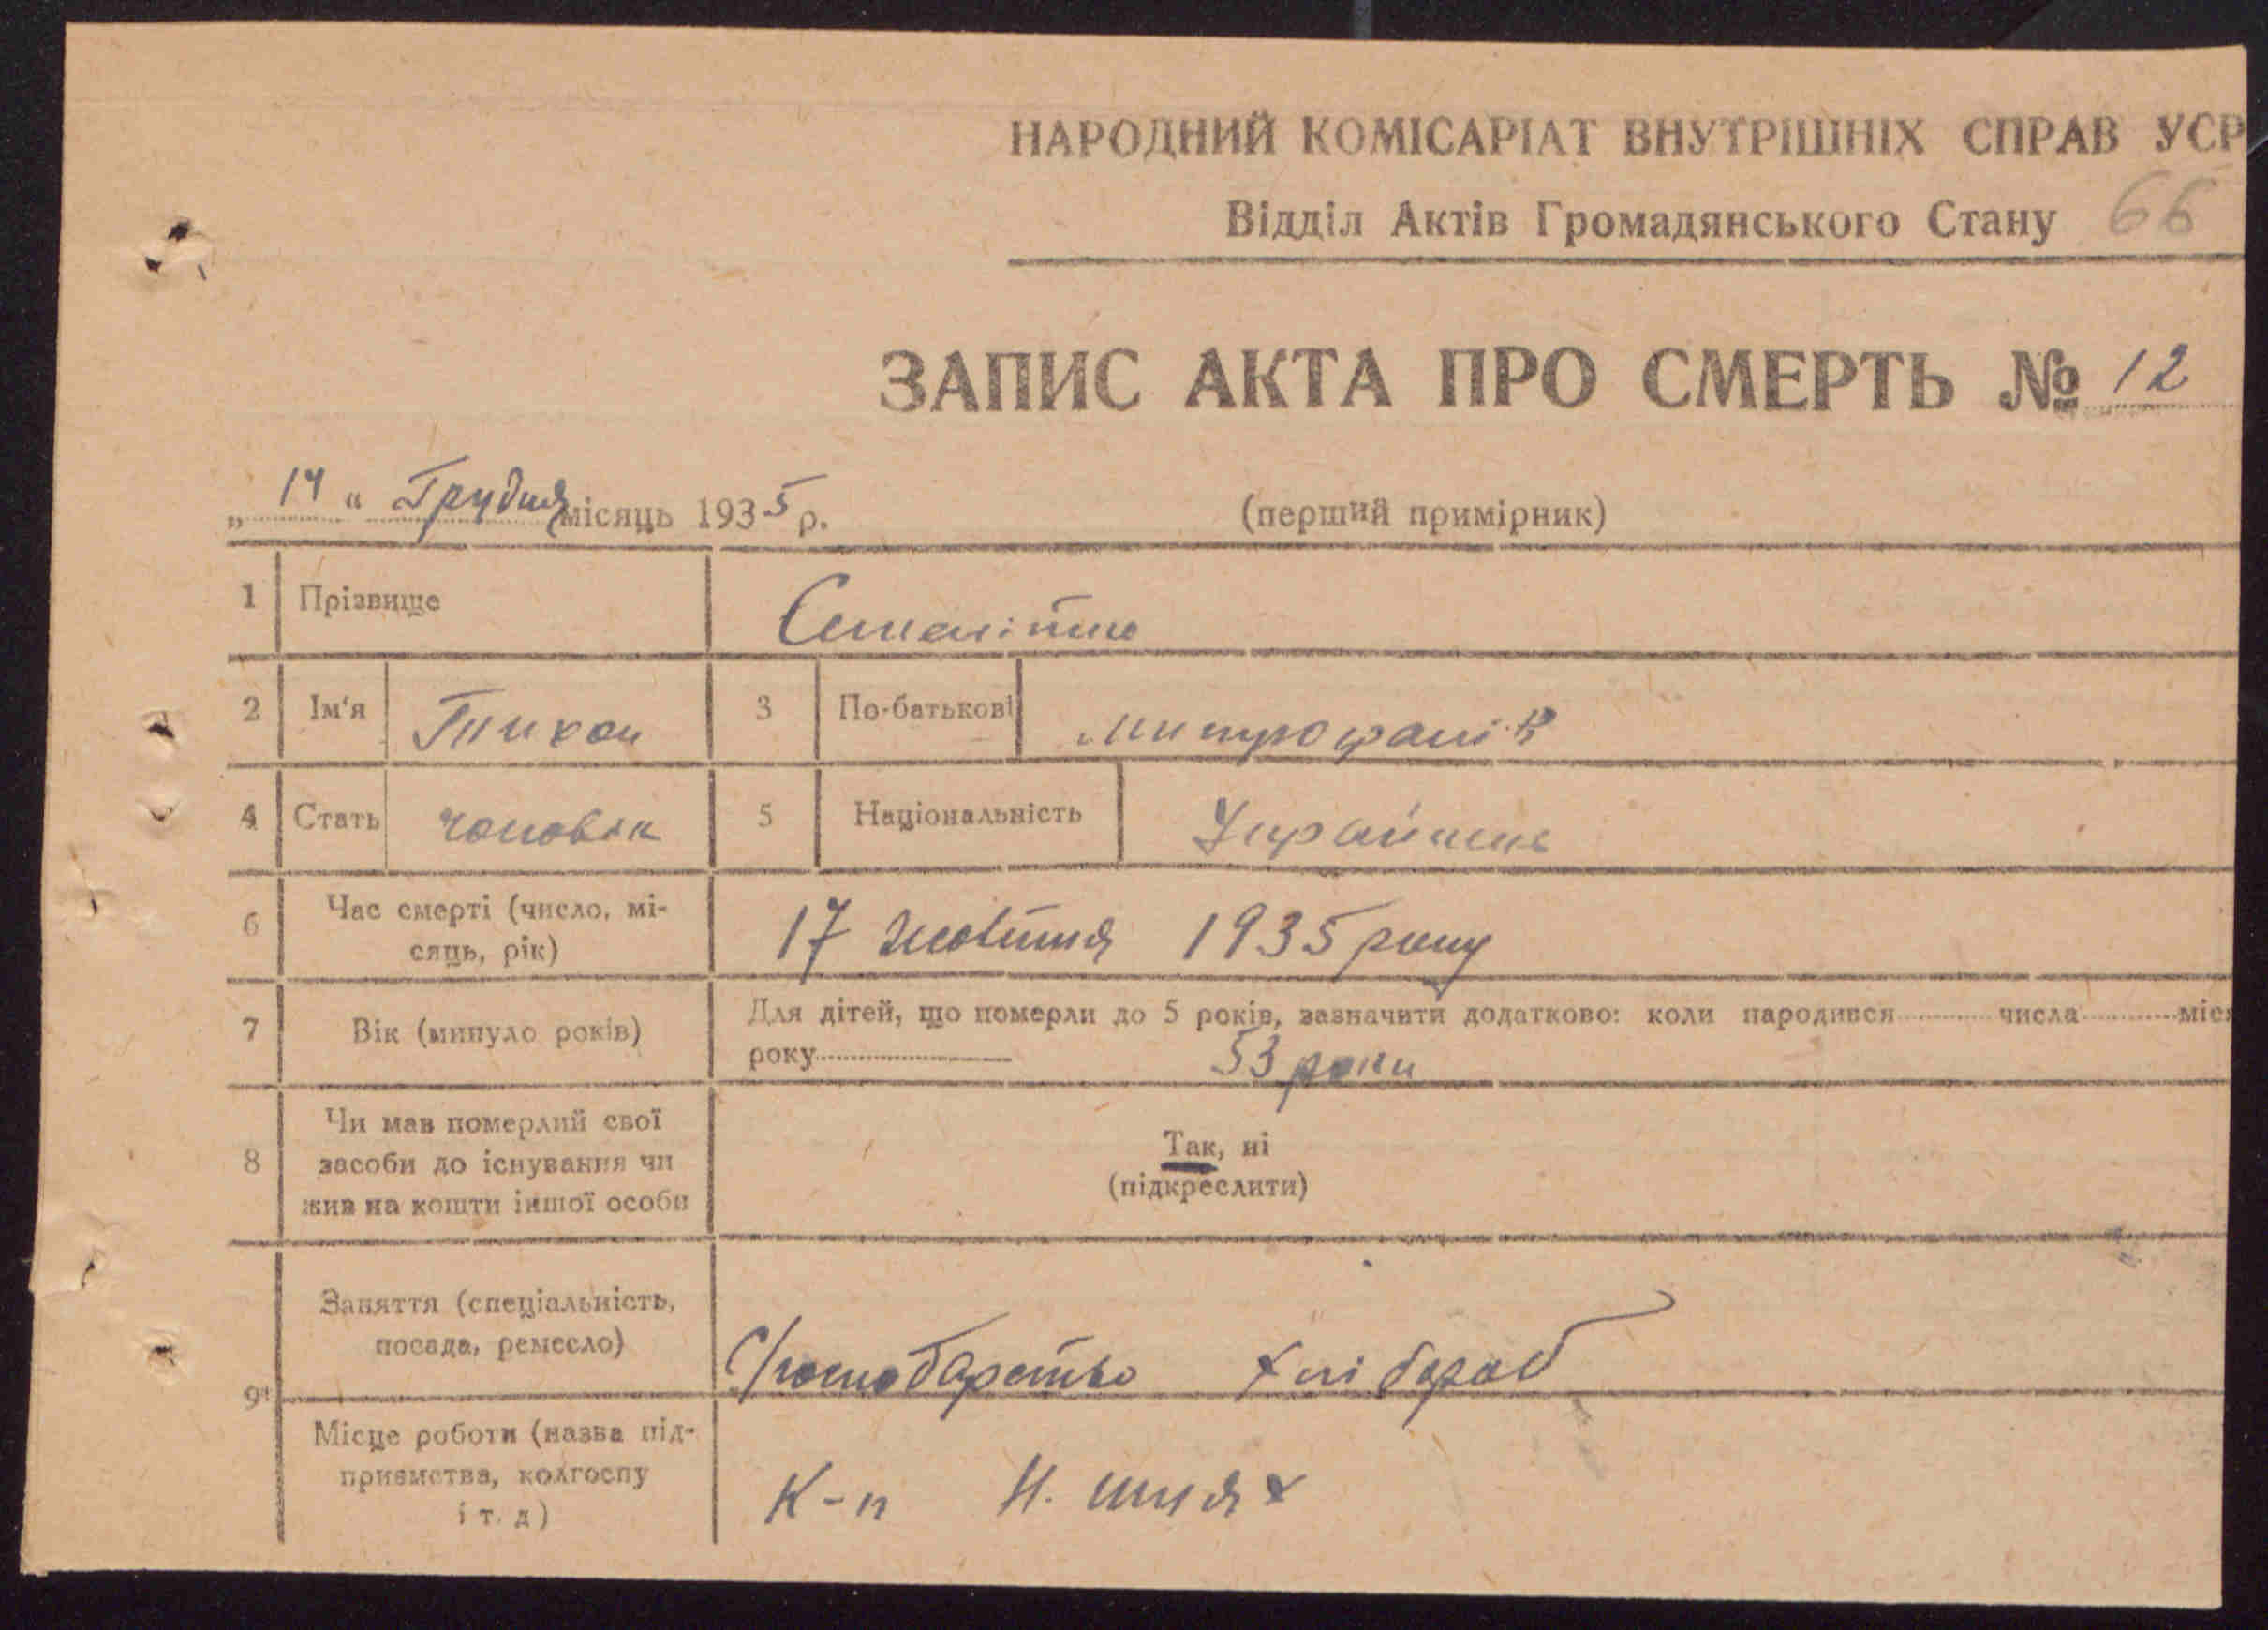 НАРОДНИЙ КОМІСАРІАТ ВНУТРІШНІХ СПРАВ УСР
Відділ Актів Громадянського Стану 66
ЗАПИС АКТА ПРО СМЕРТЬ № 12
„ 14 “ Грудня місяць 1935 р. (перший примірник)
1 Прізвище
2 Ім‘я Тихон 3 По-батькові Митрофанів
4 Стать чоловік 5 Національність Українець
6 Час смерті (число, мі-
сяць, рік) 17 жовтня 1935 року
7 Вік (минуло років) Для дітей, що померли до 5 років, зазначити додатково: коли народився числа міс
року 53 роки
8 Чи мав померлий свої
засоби до існування чи
жив на кошти іншої особи
Так, ні
(підкреслити)
9 Заняття (спеціальність,
посада, ремесло) С/господарство хлібороб
Місце роботи (назва під-
приємства, колгоспу
і т. д) К-п Н. шлях